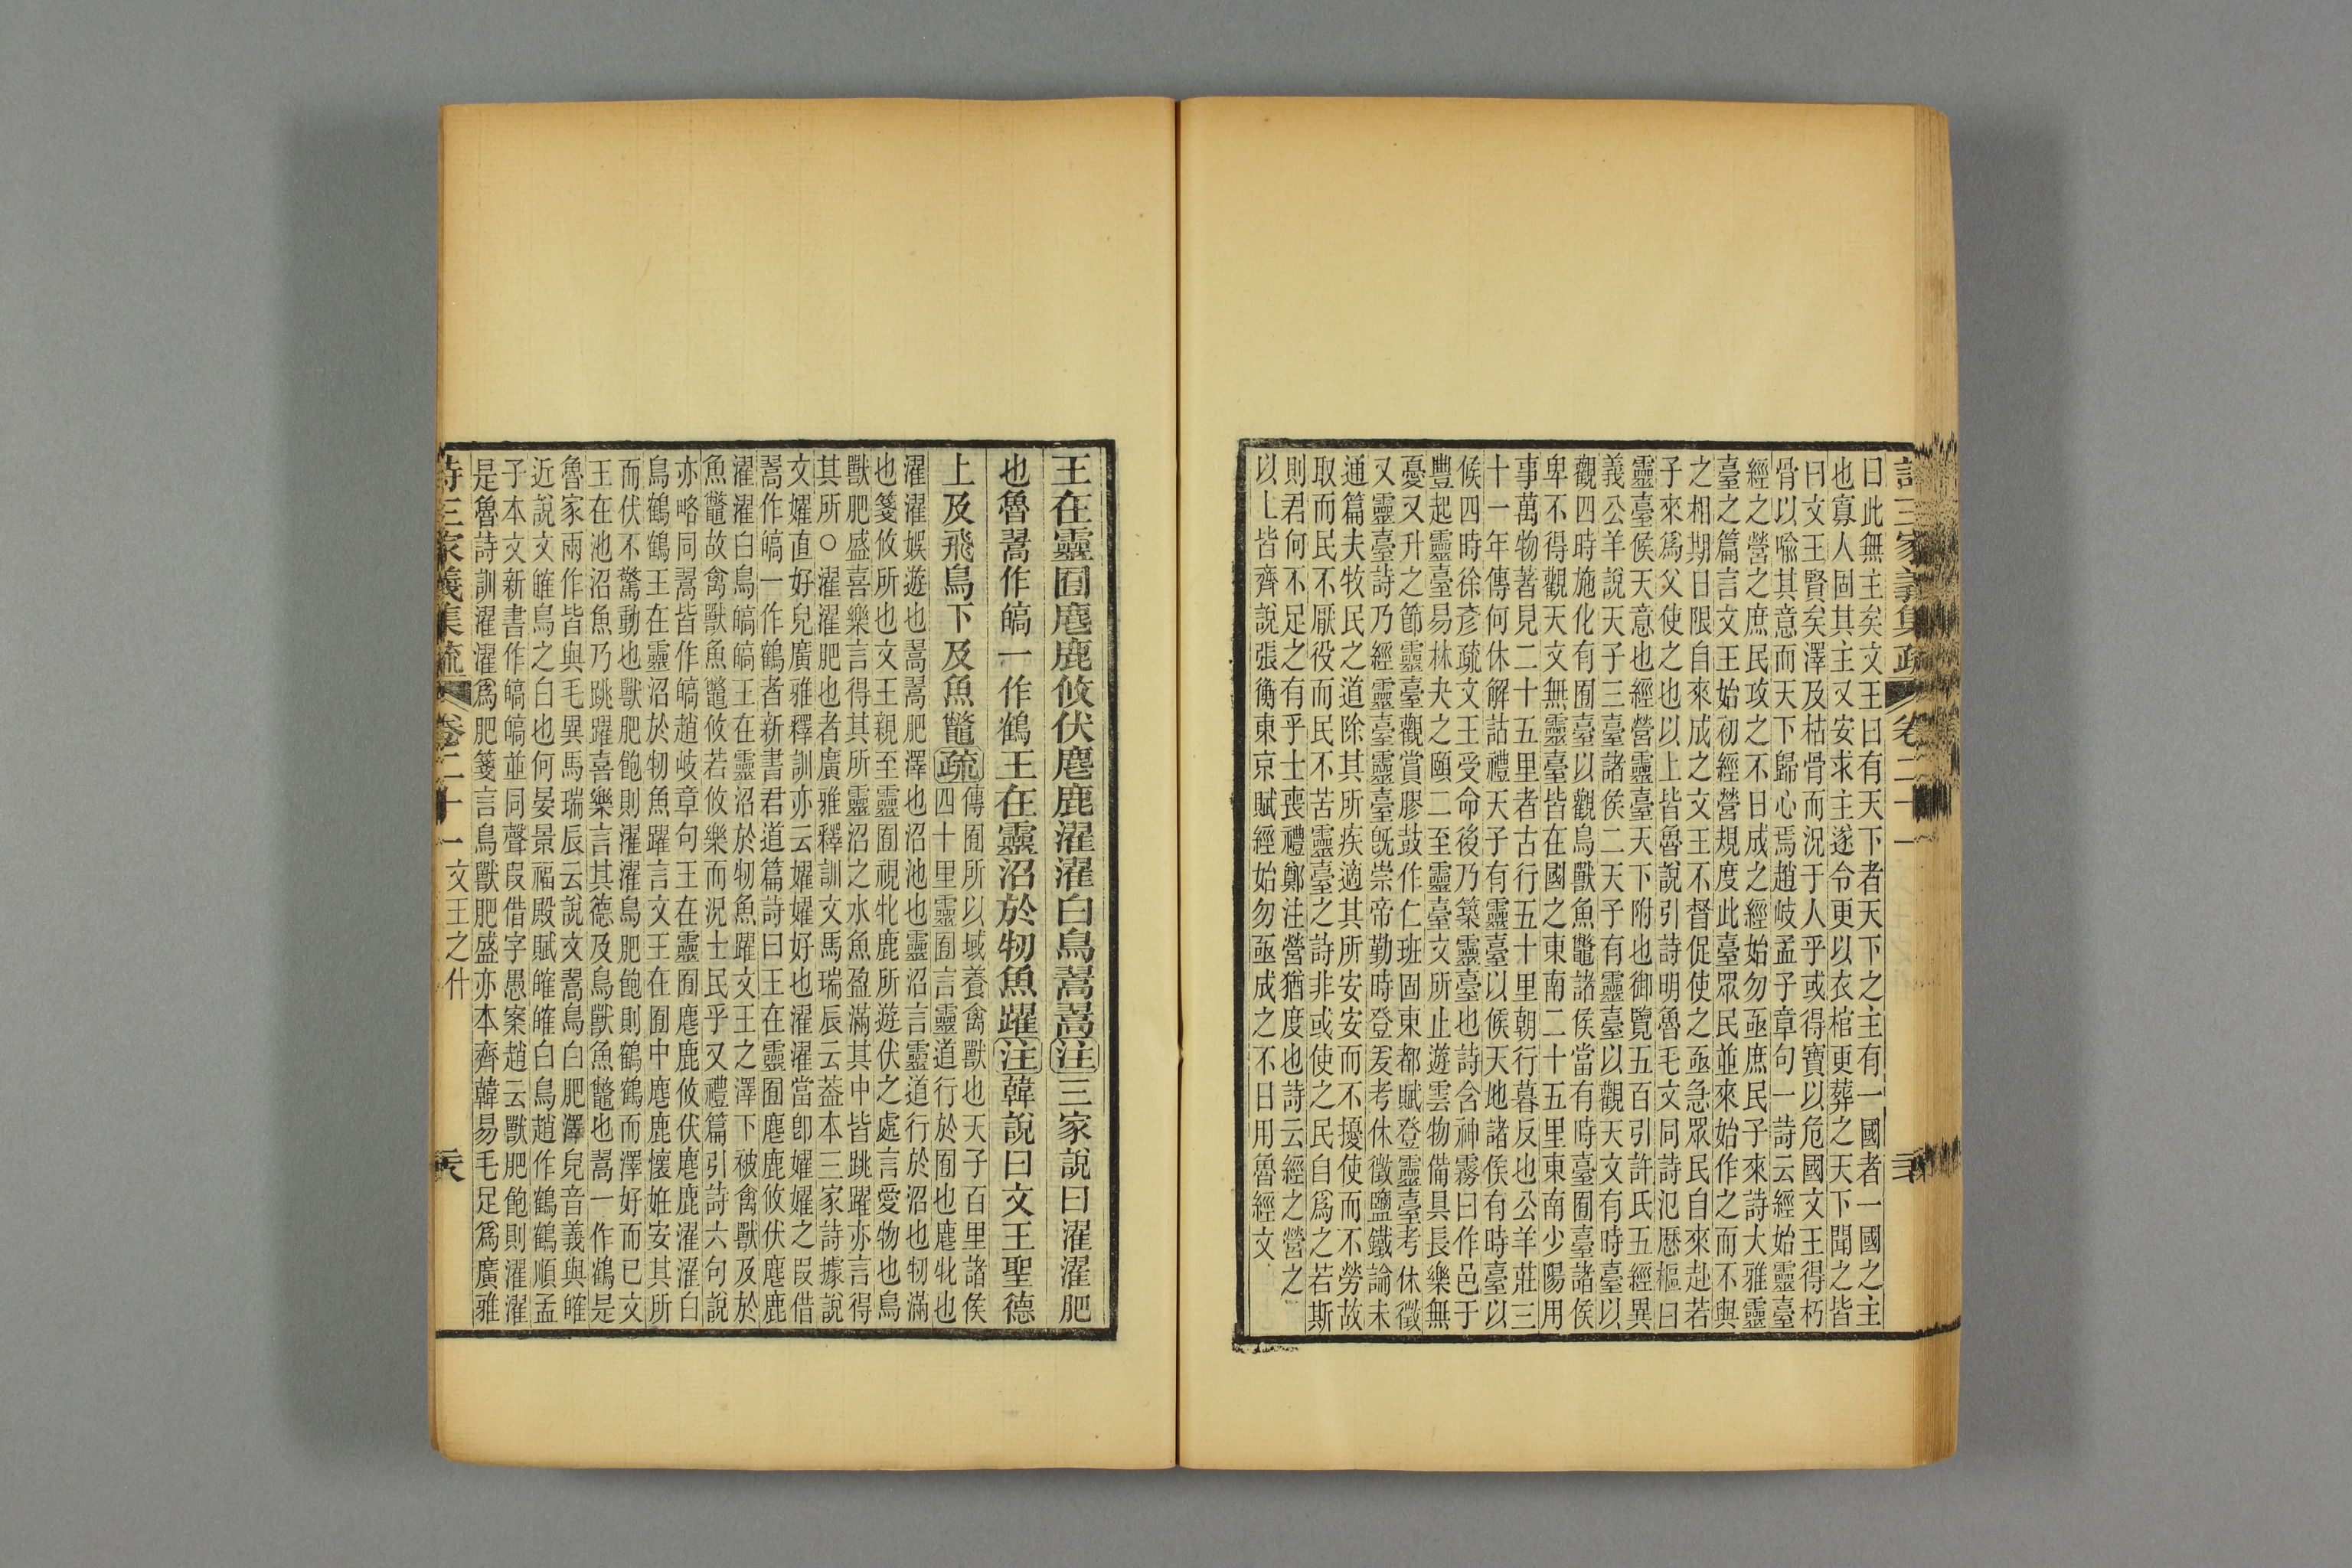 詩三家義集疏 卷二十一
曰此無主矣文王曰有天下者天下之主有一國者一國之主
也寡人固其主又安求主遂令更以衣棺更葬之天下聞之皆
曰文王賢矣澤及枯骨而況于人乎或得寶以危國文王得朽
骨以喩其意而天下歸心焉趙岐孟子章句一詩云經始靈臺
經之營之庶民攻之不日成之經始勿亟庶民子來詩大雅靈
臺之篇言文王始初經營規度此臺眾民並來始作之而不與
之相期日限自來成之文王不督促使之亟急眾民自來赴若
子來爲父使之也以上皆魯說引詩明魯毛文同詩氾厯樞曰
靈臺候天意也經營靈臺天下附也御覽五百引許氏五經異
義公羊說天子三臺諸侯二天子有靈臺以觀天文有時臺以
觀四時施化有囿臺以觀鳥獸魚鼈諸侯當有時臺囿臺諸侯
卑不得觀天文無靈臺皆在國之東南二十五里東南少陽用
事萬物著見二十五里者古行五十里朝行暮反也公羊莊三
十一年傳何休解詁禮天子有靈臺以候天地諸侯有時臺以
候四時徐彥疏文王受命後乃築靈臺也詩含神霧曰作邑于
豐起靈臺易林夬之頤二至靈臺文所止遊雲物備具長樂無
憂又升之節靈臺觀賞膠鼓作仁班固東都賦登靈臺考休徵
又靈臺詩乃經靈臺靈臺既崇帝勤時登爰考休徵鹽鐵論未
通篇夫牧民之道除其所疾適其所安安而不擾使而不勞故
取而民不厭役而民不苦靈臺之詩非或使之民自爲之若斯
則君何不足之有乎士喪禮鄭注營猶度也詩云經之營之
以上皆齊說張衡東京賦經始勿亟成之不日用魯經文
王在靈囿麀鹿攸伏麀鹿濯濯白鳥翯翯注三家說曰濯濯肥
也魯翯作皜一作鶴王在靈沼於牣魚躍注韓說曰文王聖德
上及飛鳥下及魚鼈疏傳囿所以域養禽獸也天子百里諸侯
四十里靈囿言靈道行於囿也麀牝也
濯濯娛遊也翯翯肥澤也沼池也靈沼言靈道行於沼也牣滿
也箋攸所也文王親至靈囿視牝鹿所遊伏之處言愛物也鳥
獸肥盛喜樂言得其所靈沼之水魚盈滿其中皆跳躍亦言得
其所○濯濯肥也者廣雅釋訓文馬瑞辰云葢本三家詩據說
文嬥直好皃廣雅釋訓亦云嬥嬥好也濯濯當卽嬥嬥之叚借
翯作皜一作鶴者新書君道篇詩曰王在靈囿麀鹿攸伏麀鹿
濯濯白鳥皜皜王在靈沼於牣魚躍文王之澤下被禽獸及於
魚鼈故禽獸魚鼈攸若攸樂而況士民乎又禮篇引詩六句說
亦略同翯皆作皜趙岐章句王在靈囿麀鹿攸伏麀鹿濯濯白
鳥鶴鶴王在靈沼於牣魚躍言文王在囿中麀鹿懷姙安其所
而伏不驚動也獸肥飽則濯濯鳥肥飽則鶴鶴而澤好而已文
王在池沼魚乃跳躍喜樂言其德及鳥獸魚鼈也翯一作鶴是
魯家兩作皆與毛異馬瑞辰云說文翯鳥白肥澤皃音義與皠
近說文皠鳥之白也何晏景福殿賦皠皠白鳥趙作鶴鶴順孟
子本文新書作皜皜並同聲叚借字愚案趙云獸肥飽則濯濯
是魯詩訓濯濯爲肥箋言鳥獸肥盛亦本齊韓易毛足爲廣雅
詩三家義集疏 卷二十一 文王之什